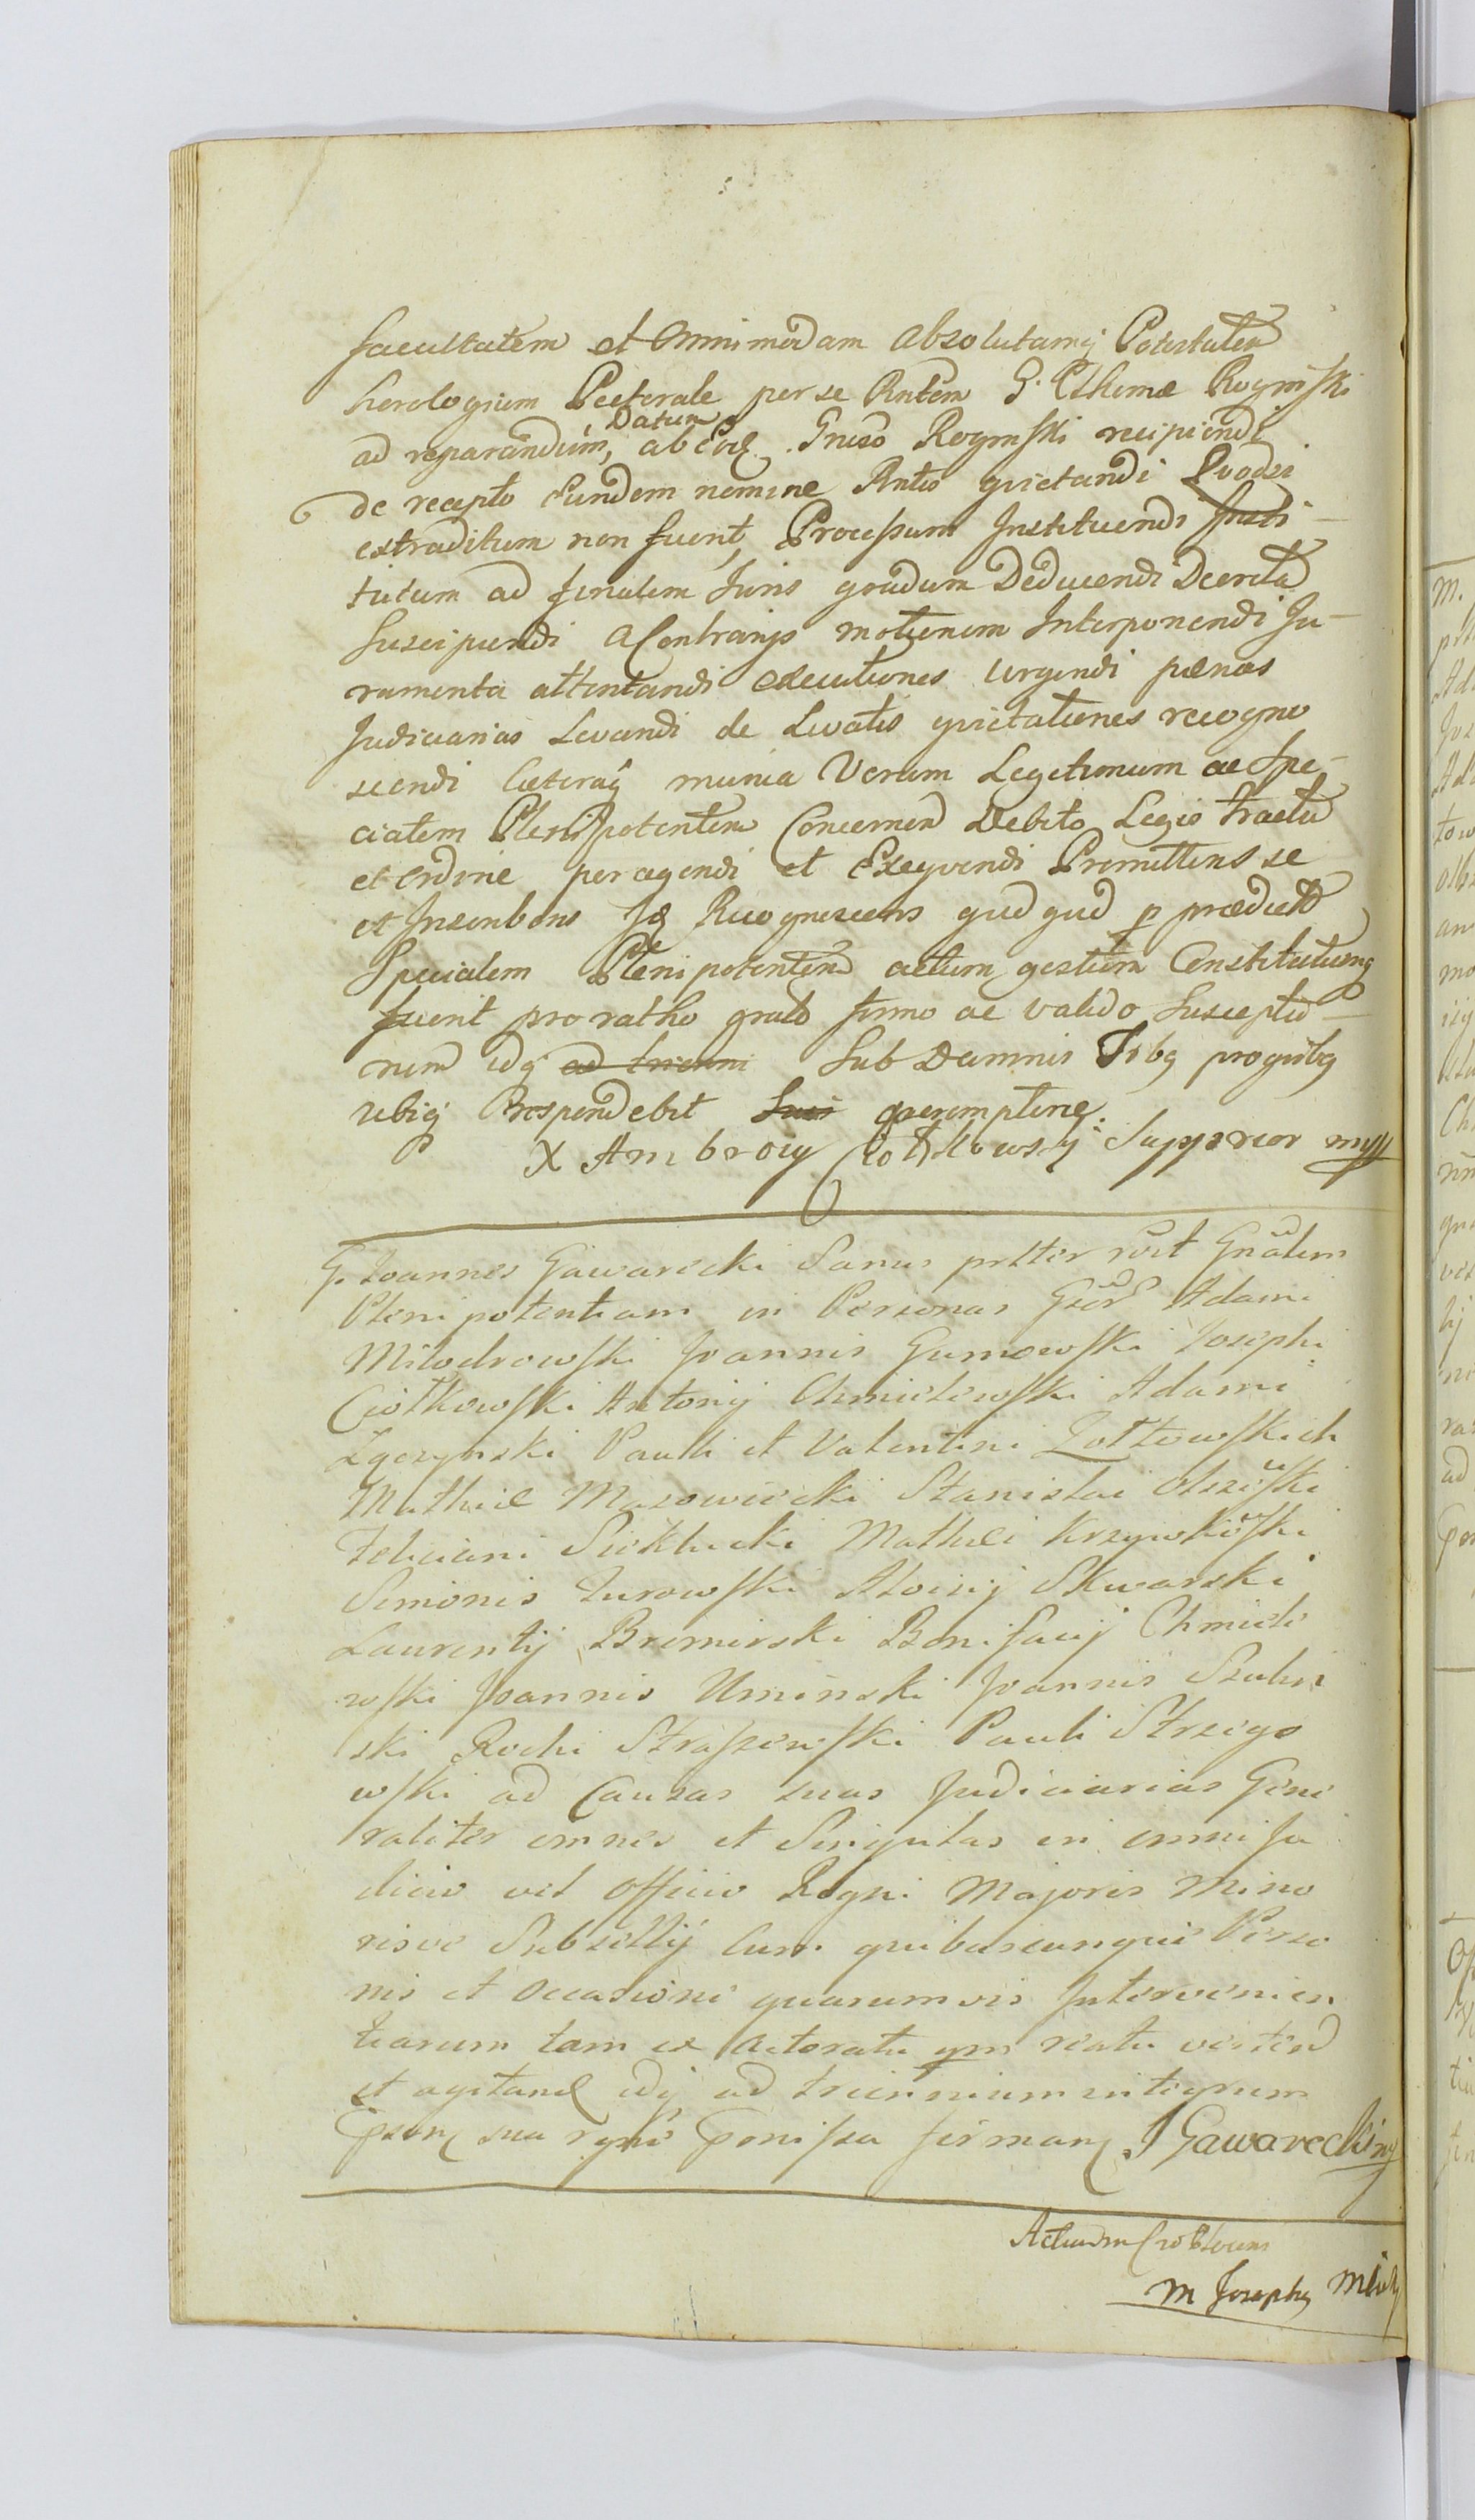 facultatem et omnimodam absolutamq Potestatem
horologium Pectorale per se Rntem G. Rogiński
ad reparandum, Datum ab Eod. Gnso Rogiński recipiendi
de recepto Eundem nomine Rntis quietandi Quodsi
extraditum non fuerit, Processum Instituendi Insti-
tutum ad finalem Juris gradum Deducendi Decreta
Suscipiendi a Contrarys motionem Interponendi Ju-
ramenta attentandi executiones urgendi pænas
Judiciarias Levandi de Levatis quietationes recogno
scendi Cæteraq munia Verum Legitimum ac Spe-
cialem Plenipotentem Concernen Debito Legis tractu
et ordine peragendi et Exeqvendi Promittens se
et Inscribens Jq Recognoscens qud qud p prædictu
Specialem Plenipotentem actum gestum Constitutumq
fuerit pro ratho grato firmo ac valido Suscepturum
idq ad trienni Sub Damnis Trbq proquibq
ubiq Respondebit Suis peremptorie.
X Ambrozy Ciołkowsky Supperior mpp
G. Joannes Gawarecki Sanus pltter rōit Gnālem
Plenipotentiam in Personas Gsor Adami
Milodrowski Joannis Gumowski Josephi
Ciołkowski Antonij Chmielewski Adami
Łączynski Paulli et Valentini Żołtowskich
Mathiæ Mazowiecki Stanislai Olszewski
Feliciani Sieklucki Mathæi Krzywkowski
Simonis Żurowski Aloisij Skwarski
Laurentij Bromirski Bonifacij Chmiele
wski Joannis Uminski Joannis Szulin
ski Rochi Straszewski Pauli Strzego
wski ad Causas suas Judiciarias Gene
raliter omnes et Singulas in omni Ju
dicio vel officio Regni Majoris Mino
risve Subsellij Cum quibuscunque Perso
nis et Occasione quarumvis Intervenien
tiarum tam ex Actoratu qm reatu verten
et agitand idq ad triennium integrum
sua Gawarecki mp
m Josephq